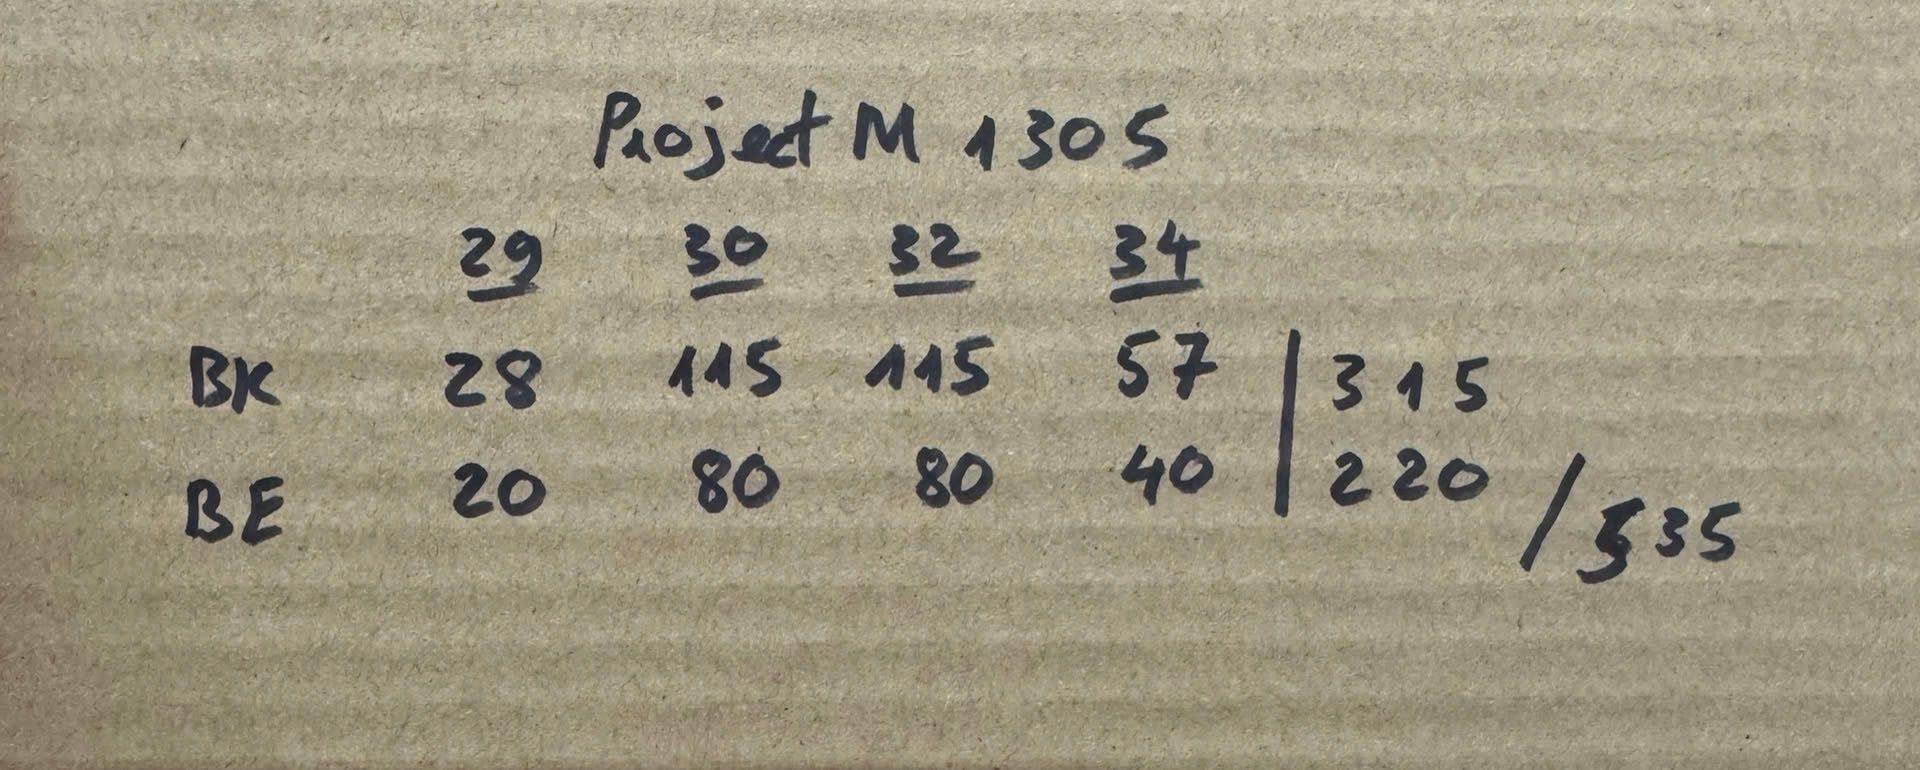 Project M 1305
29 30 32 34
BK 28 115 115 57 | 315
BE 20 80 80 40 | 220 / 535